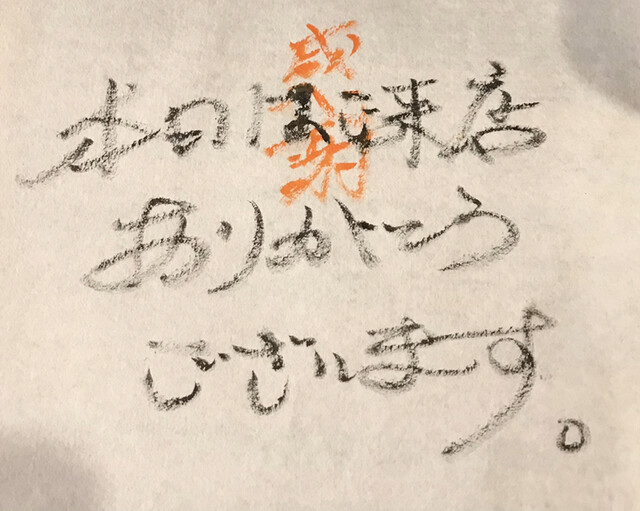 本日はご来店
ありがとう
ございます。